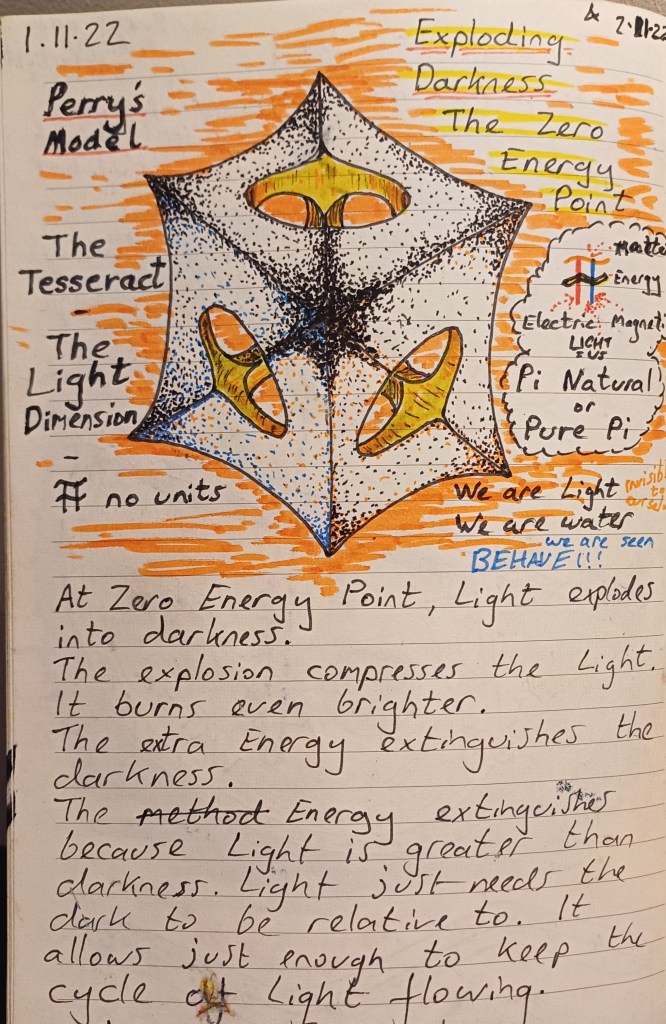 1.11.22
& 2.11.22
Exploding
Darkness
The Zero
Energy
Point
Perry's
Model
The
Tesseract
-
The
Light
Dimension
-
no units
Matte
Energy
Electric Magneti
LIGHT
= US
Pi Natural
or
Pure Pi
We are Light invisib
to
ourselv
We are water
we are seen
BEHAVE!!!
At Zero Energy Point, Light explodes
into darkness.
The explosion compresses the Light.
It burns even brighter.
The extra Energy extinguishes the
darkness.
The method Energy extinguishes
because Light is greater than
darkness. Light just needs the
dark to be relative to. It
allows just enough to keep the
cycle of Light flowing.